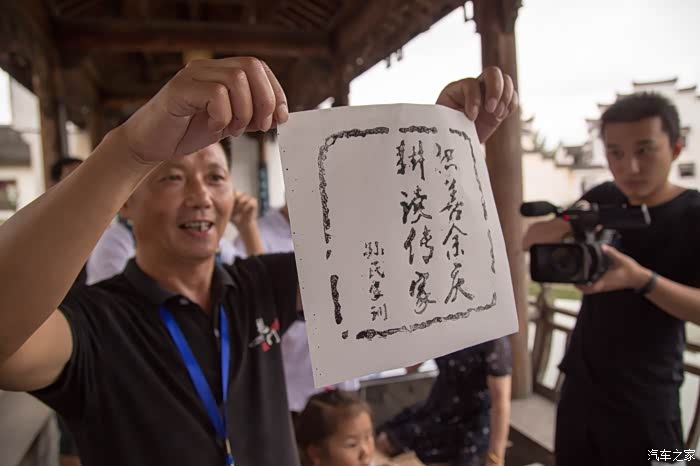 积善余庆
耕读传家
孙氏家训
汽车之家